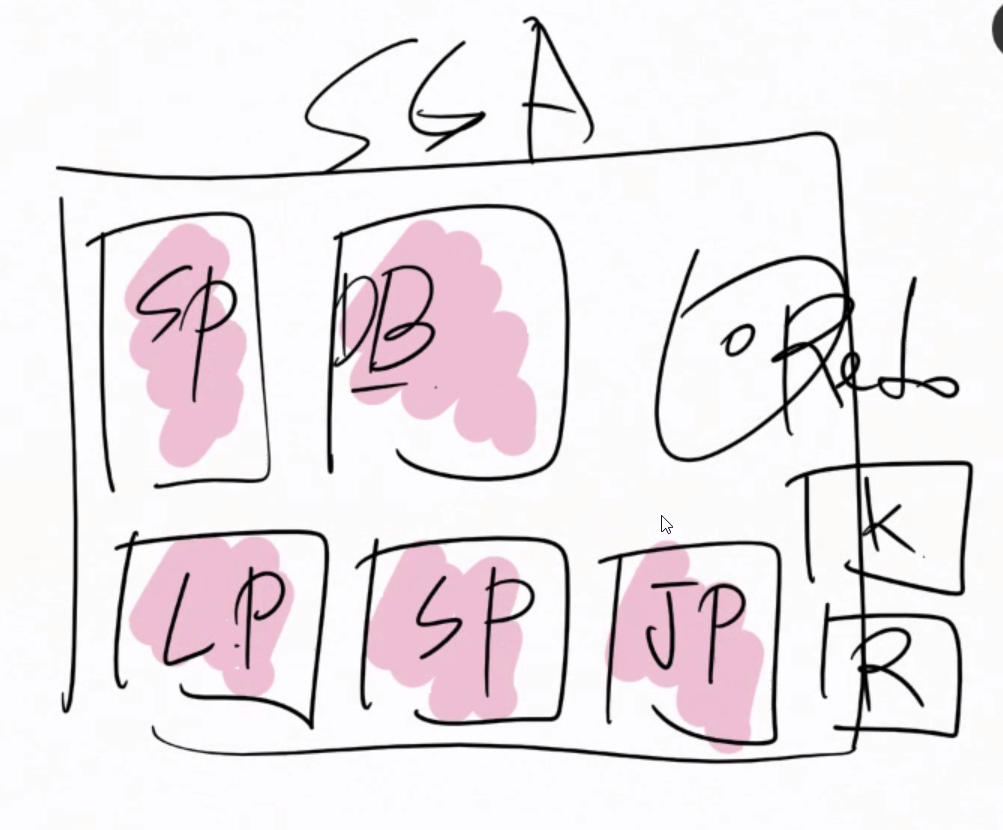 SGA
SP
DB
Redo
K
LP
SP
JP
R